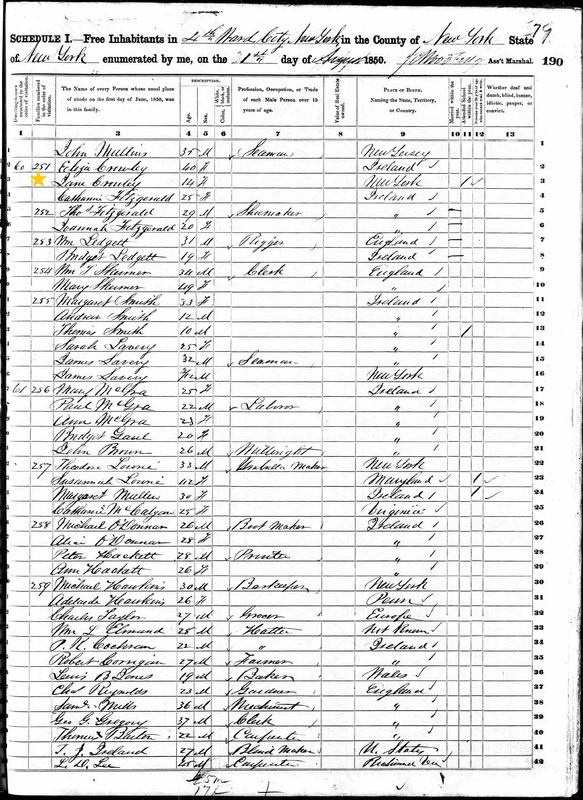 79
SCHEDULE I.—Free Inhabitants in 4th Ward City New York in the County of New York State
of New York enumerated by me, on the 31st day of August 1850. Ass't Marshal. 190
DESCRIPTION.
The Name of every Person whose usual place of abode on the first day of June, 1850, was in this family.
Age. Sex.
Profession, Occupation, or Trade of each Male Person over 15 years of age.
Value of Real Estate owned.
PLACE OF BIRTH. Naming the State, Territory, or Country.
Whether deaf and dumb, blind, insane, idiotic, pauper, or convict.
1 2 3 4 5 6 7 8 9 10 11 12 13
1 John Mullins 35 M Seaman New Jersey 1
2 60 251 Crowley 40 F Ireland 2
3 Jane Crowley 14 F New York 1 3
4 Catharine Fitzgerald 25 F Ireland 4
5 252 Thos Fitzgerald 29 M Shoemaker " 5
6 Joannah Fitzgerald 20 F " 6
7 253 Wm Ledgett 31 M Rigger England 7
8 Bridget Ledgett 19 F Ireland 8
9 254 Wm T Skinner M Clerk England 9
10 Mary Skinner 49 F " 10
11 255 Margaret Smith 33 F Ireland 11
12 Andrew Smith 12 M " 12
13 Thomas Smith 10 M " 1 13
14 Sarah Lavery 25 F " 14
15 James Lavery 32 M Seaman " 15
16 James Lavery M New York 16
17 61 256 Mary McGra 25 F Ireland 17
18 Paul McGra 22 M Laborer " 18
19 Ann McGra 23 F " 19
20 Bridget Gaul 20 F " 20
21 John Brown 26 M Millwright " 21
22 257 Theodore 33 M Umbrella Maker New York 22
23 Susannah 42 F Maryland 1 23
24 Margaret Mullen 30 F Ireland 1 24
25 Catharine 25 F Virginia 25
26 258 Michael O'Connar 26 M Boot Maker Ireland 26
27 Alice O'Connar 28 F " 27
28 Peter Hackett 28 M Printer " 28
29 Ann Hackett 26 F " 29
30 259 Michael Hawkins 30 M Barkeeper New York 30
31 Adelaide Hawkins 26 F Penn 31
32 Charles Taylor 27 M Grocer Europe 32
33 Wm L 25 M Hatter Not Known 33
34 P. K. Cochran 22 M " Ireland 34
35 Robert Corrigan 27 M Farmer " 35
36 Lewis B Jones 19 M Baker Wales 36
37 Chas Reynolds 23 M England 37
38 Saml Mills 36 M Merchant " 38
39 Geo G. Gregory 37 M Clerk " 39
40 Thomas 22 M Carpenter " 40
41 T. J. Ireland 27 M Blind Maker U. States 41
42 L. D. Lee M Carpenter 42
25 m
17 f